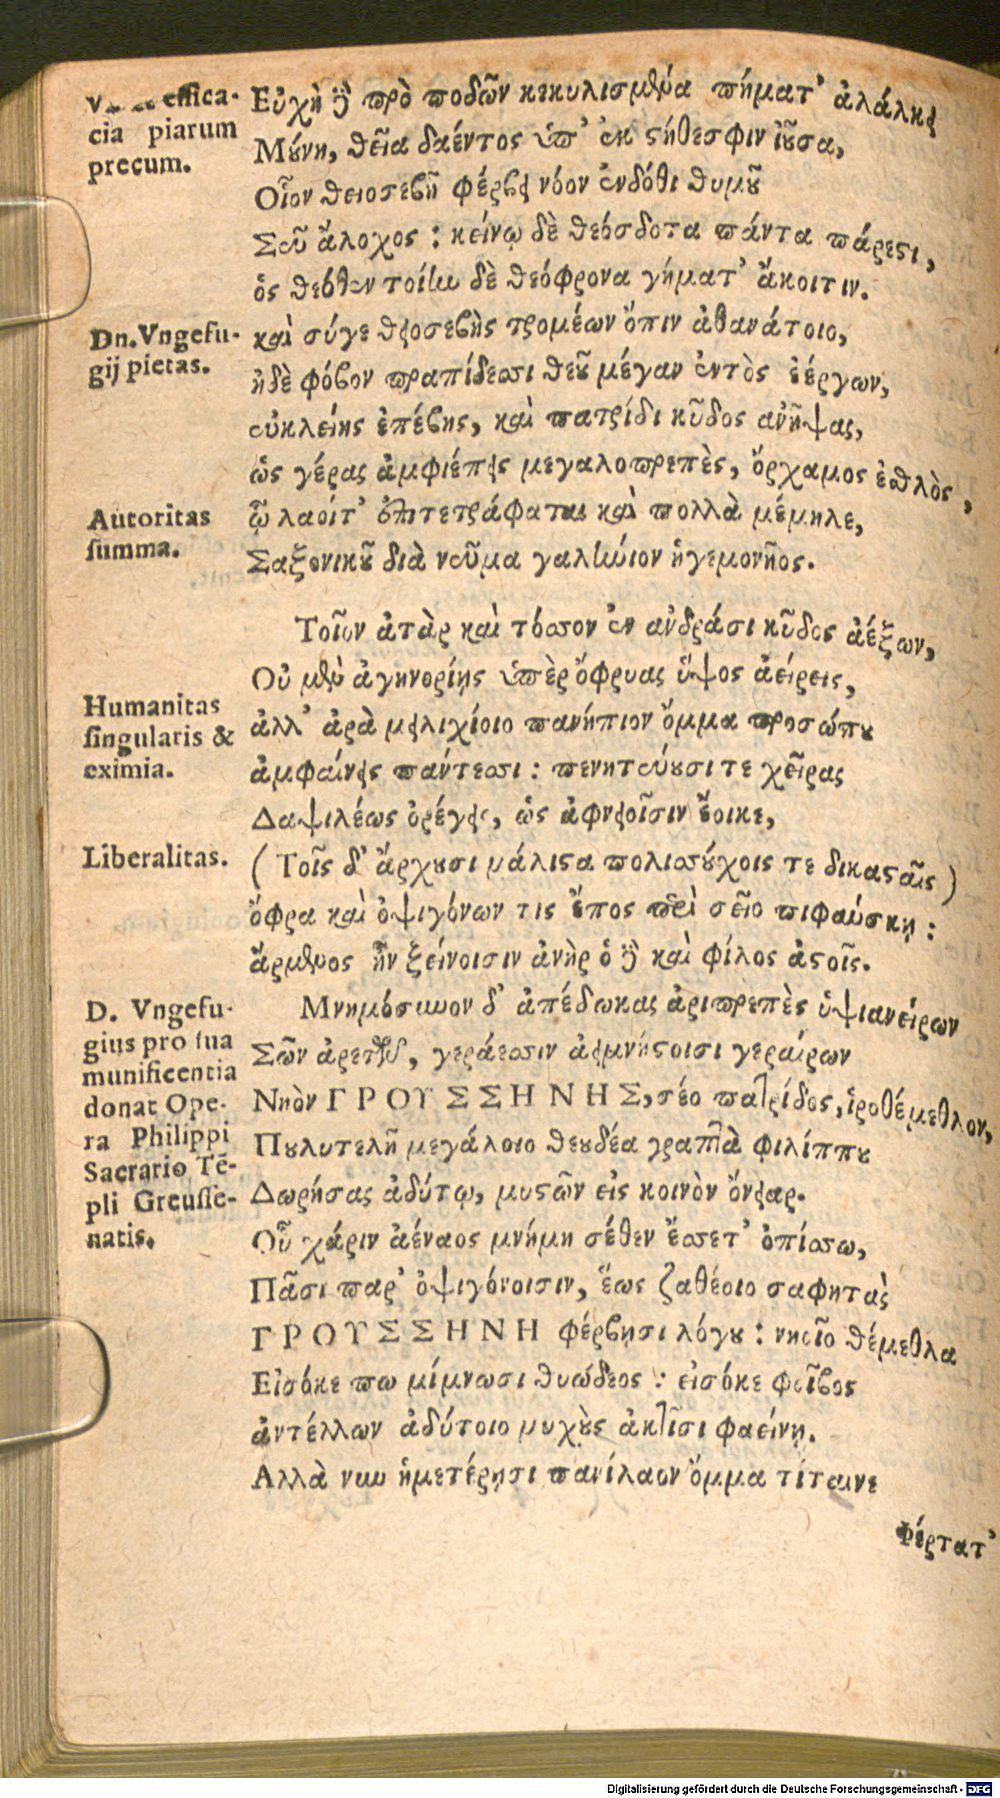 effica-
cia piarum
precum.
Εὐχὴ γὸ πρὸ ποδῶν κεκυλισμένα πήματ' ἀλάλκει
Μούνη, θεῖα δαέντος ὑπ' ἐκ στήθεσφιν ἰοῦσα,
Οἷον θειοσεβῆ φέρβει νόον ἐνδόθι θυμοῦ
Σεῦ ἄλοχος : κείνῳ δὲ θεόσδοτα πάντα πάρεστι,
ὃς θεόθεν τοίην δὲ θεόφρονα γήματ' ἄκοιτιν.
Dn. Vngefu-
gij pietas.
καὶ σύγε θεοσεβὴς τρομέων ὄπιν ἀθανάτοιο,
ἠδὲ φόβον πραπίδεσσι θεοῦ μέγαν ἐντὸς ἐέργων,
εὐκλείης ἐπέβης, καὶ πατρίδι κῦδος ἀνῆψας,
ὡς γέρας ἀμφιέπεις μεγαλοπρεπὲς, ὄρχαμος ἐσθλὸς,
Autoritas
summa.
ᾧ λαοίτ' ἐπιτετράφαται καὶ πολλὰ μέμηλε,
Σαξονικοῦ διὰ νεῦμα γαλήνιον ἡγεμονῆος.
Τοῖον ἀτὰρ καὶ τόσσον ἐν ἀνδράσι κῦδος ἀέξων,
Οὐ μὲν ἀγηνορίης ὑπὲρ ὄφρυας ὕψος ἀείρεις,
Humanitas
singularis &
eximia.
ἀλλ' ἀρὰ μειλιχίοιο πανήπιον ὄμμα προσώπου
ἀμφαίνεις πάντεσσι : πενητεύουσι τε χεῖρας
Δαψιλέως ὀρέγεις, ὡς ἀφνειοῖσιν ἔοικε,
Liberalitas.
( Τοῖς δ' ἄρχουσι μάλιστα πολισσούχοις τε δικασταῖς )
ὄφρα καὶ ὀψιγόνων τις ἔπος περὶ σεῖο πιφαύσκῃ :
ἄρμενος ἦν ξείνοισιν ἀνὴρ ὁ γὸ καὶ φίλος ἀστοῖς.
D. Vngefu-
gius pro sua
munificentia
donat Ope-
ra Philippi
Sacrario Tē-
pli Greusse-
natis.
Μνημόσυνον δ' ἀπέδωκας ἀριπρεπὲς ὑψιανείρων
Σῶν ἀρετῶν, γεράεσσιν ἀειμνήστοισι γεραίρων
Νηὸν ΓΡΟΥΣΣΗΝΗΣ, σέο πατρίδος, ἱροθέμεθλον,
Πουλυτελῆ μεγάλοιο θεουδέα γραπτὰ φιλίππου
Δωρήσας ἀδύτῳ, μυστῶν εἰς κοινὸν ὄνειαρ.
Οὗ χάριν ἀέναος μνήμη σέθεν ἔσσετ' ὀπίσσω,
Πᾶσι παρ' ὀψιγόνοισιν, ἕως ζαθέοιο σαφητὰς
ΓΡΟΥΣΣΗΝΗ φέρβησι λόγου : νηεῖο θέμεθλα
Εἰσόκε πω μίμνωσι θυώδεος : εἰσόκε φοῖβος
ἀντέλλων ἀδύτοιο μυχοὺς ἀκτῖσι φαείνῃ.
Αλλὰ νῦν ἡμετέρῃσι πανίλαον ὄμμα τίταινε
Φέρτατ'
Digitalisierung gefördert durch die Deutsche Forschungsgemeinschaft - DFG